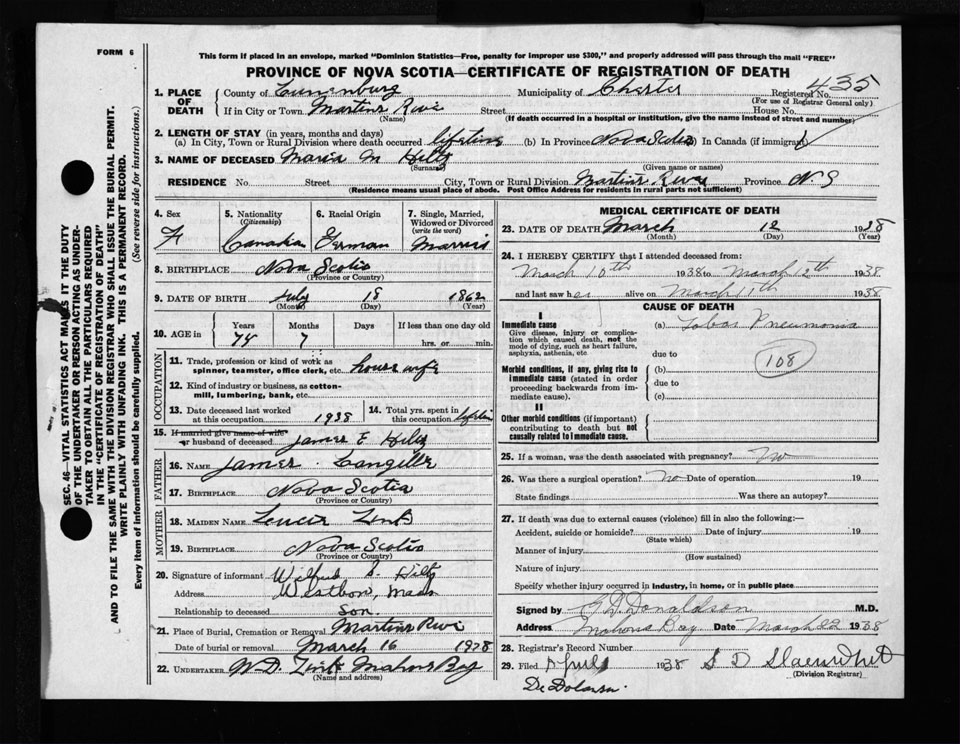 FORM 6
This form if placed in an envelope, marked "Dominion Statistics—Free, penalty for improper use $300," and properly addressed will pass through the mail "FREE"
PROVINCE OF NOVA SCOTIA—CERTIFICATE OF REGISTRATION OF DEATH
435
1. PLACE OF DEATH County of Lunenburg Municipality of Chester Registered No.
(For use of Registrar General only)
If in City or Town Martins River Street House No.
(Name) (If death occurred in a hospital or institution, give the name instead of street and number)
2. LENGTH OF STAY (in years, months and days)
(a) In City, Town or Rural Division where death occurred lifetime (b) In Province Nova Scotia In Canada (if immigrant)
3. NAME OF DECEASED Maria M Hiltz
(Surname) (Given name or names)
RESIDENCE No. Street City, Town or Rural Division Martins River Province N S
(Residence means usual place of abode. Post Office Address for residents in rural parts not sufficient)
4. Sex 5. Nationality (Citizenship) 6. Racial Origin 7. Single, Married, Widowed or Divorced (write the word)
F Canadian German Married
8. BIRTHPLACE Nova Scotia
(Province or Country)
9. DATE OF BIRTH July 18 1862
(Month) (Day) (Year)
10. AGE in Years Months Days If less than one day old
7 hrs. or min.
OCCUPATION
11. Trade, profession or kind of work as spinner, teamster, office clerk, etc. house wife
12. Kind of industry or business, as cotton-mill, lumbering, bank, etc.
13. Date deceased last worked at this occupation 1938 14. Total yrs. spent in this occupation lifetime
15. If married give name of wife or husband of deceased James E Hiltz
FATHER
16. NAME James Langille
17. BIRTHPLACE Nova Scotia
(Province or Country)
MOTHER
18. MAIDEN NAME
19. BIRTHPLACE Nova Scotia
(Province or Country)
20. Signature of informant Wilfred S. Hiltz
Address Mass
Relationship to deceased Son.
21. Place of Burial, Cremation or Removal Martins River
Date of burial or removal March 16 1938
22. UNDERTAKER W D Zink Mahone Bay
(Name and address)
MEDICAL CERTIFICATE OF DEATH
23. DATE OF DEATH March 12 1938
(Month) (Day) (Year)
24. I HEREBY CERTIFY that I attended deceased from:
March 10th 1938 to March 12th 1938
and last saw her alive on March 11th 1938
CAUSE OF DEATH
I
Immediate cause (a) Lobar Pneumonia
Give disease, injury or complication which caused death, not the mode of dying, such as heart failure, asphyxia, asthenia, etc
due to
108
Morbid conditions, if any, giving rise to immediate cause (stated in order proceeding backwards from immediate cause).
(b)
due to
(c)
II
Other morbid conditions (if important) contributing to death but not causally related to immediate cause.
25. If a woman, was the death associated with pregnancy? No
26. Was there a surgical operation? No Date of operation 19
State findings Was there an autopsy?
27. If death was due to external causes (violence) fill in also the following:—
Accident, suicide or homicide? Date of injury 19
(State which)
Manner of injury
(How sustained)
Nature of injury
Specify whether injury occurred in industry, in home, or in public place
Signed by Donaldson M.D.
Address Mahone Bay Date March 22 1938
28. Registrar's Record Number
29. Filed April 1938 S D
(Division Registrar)
SEC. 46—VITAL STATISTICS ACT MAKES IT THE DUTY
OF THE UNDERTAKER OR PERSON ACTING AS UNDER-
TAKER TO OBTAIN ALL THE PARTICULARS REQUIRED
IN THE "CERTIFICATE OF REGISTRATION OF DEATH"
AND TO FILE THE SAME WITH THE DIVISION REGISTRAR WHO SHALL ISSUE THE BURIAL PERMIT.
WRITE PLAINLY WITH UNFADING INK. THIS IS A PERMANENT RECORD.
Every item of information should be carefully supplied. (See reverse side for instructions.)